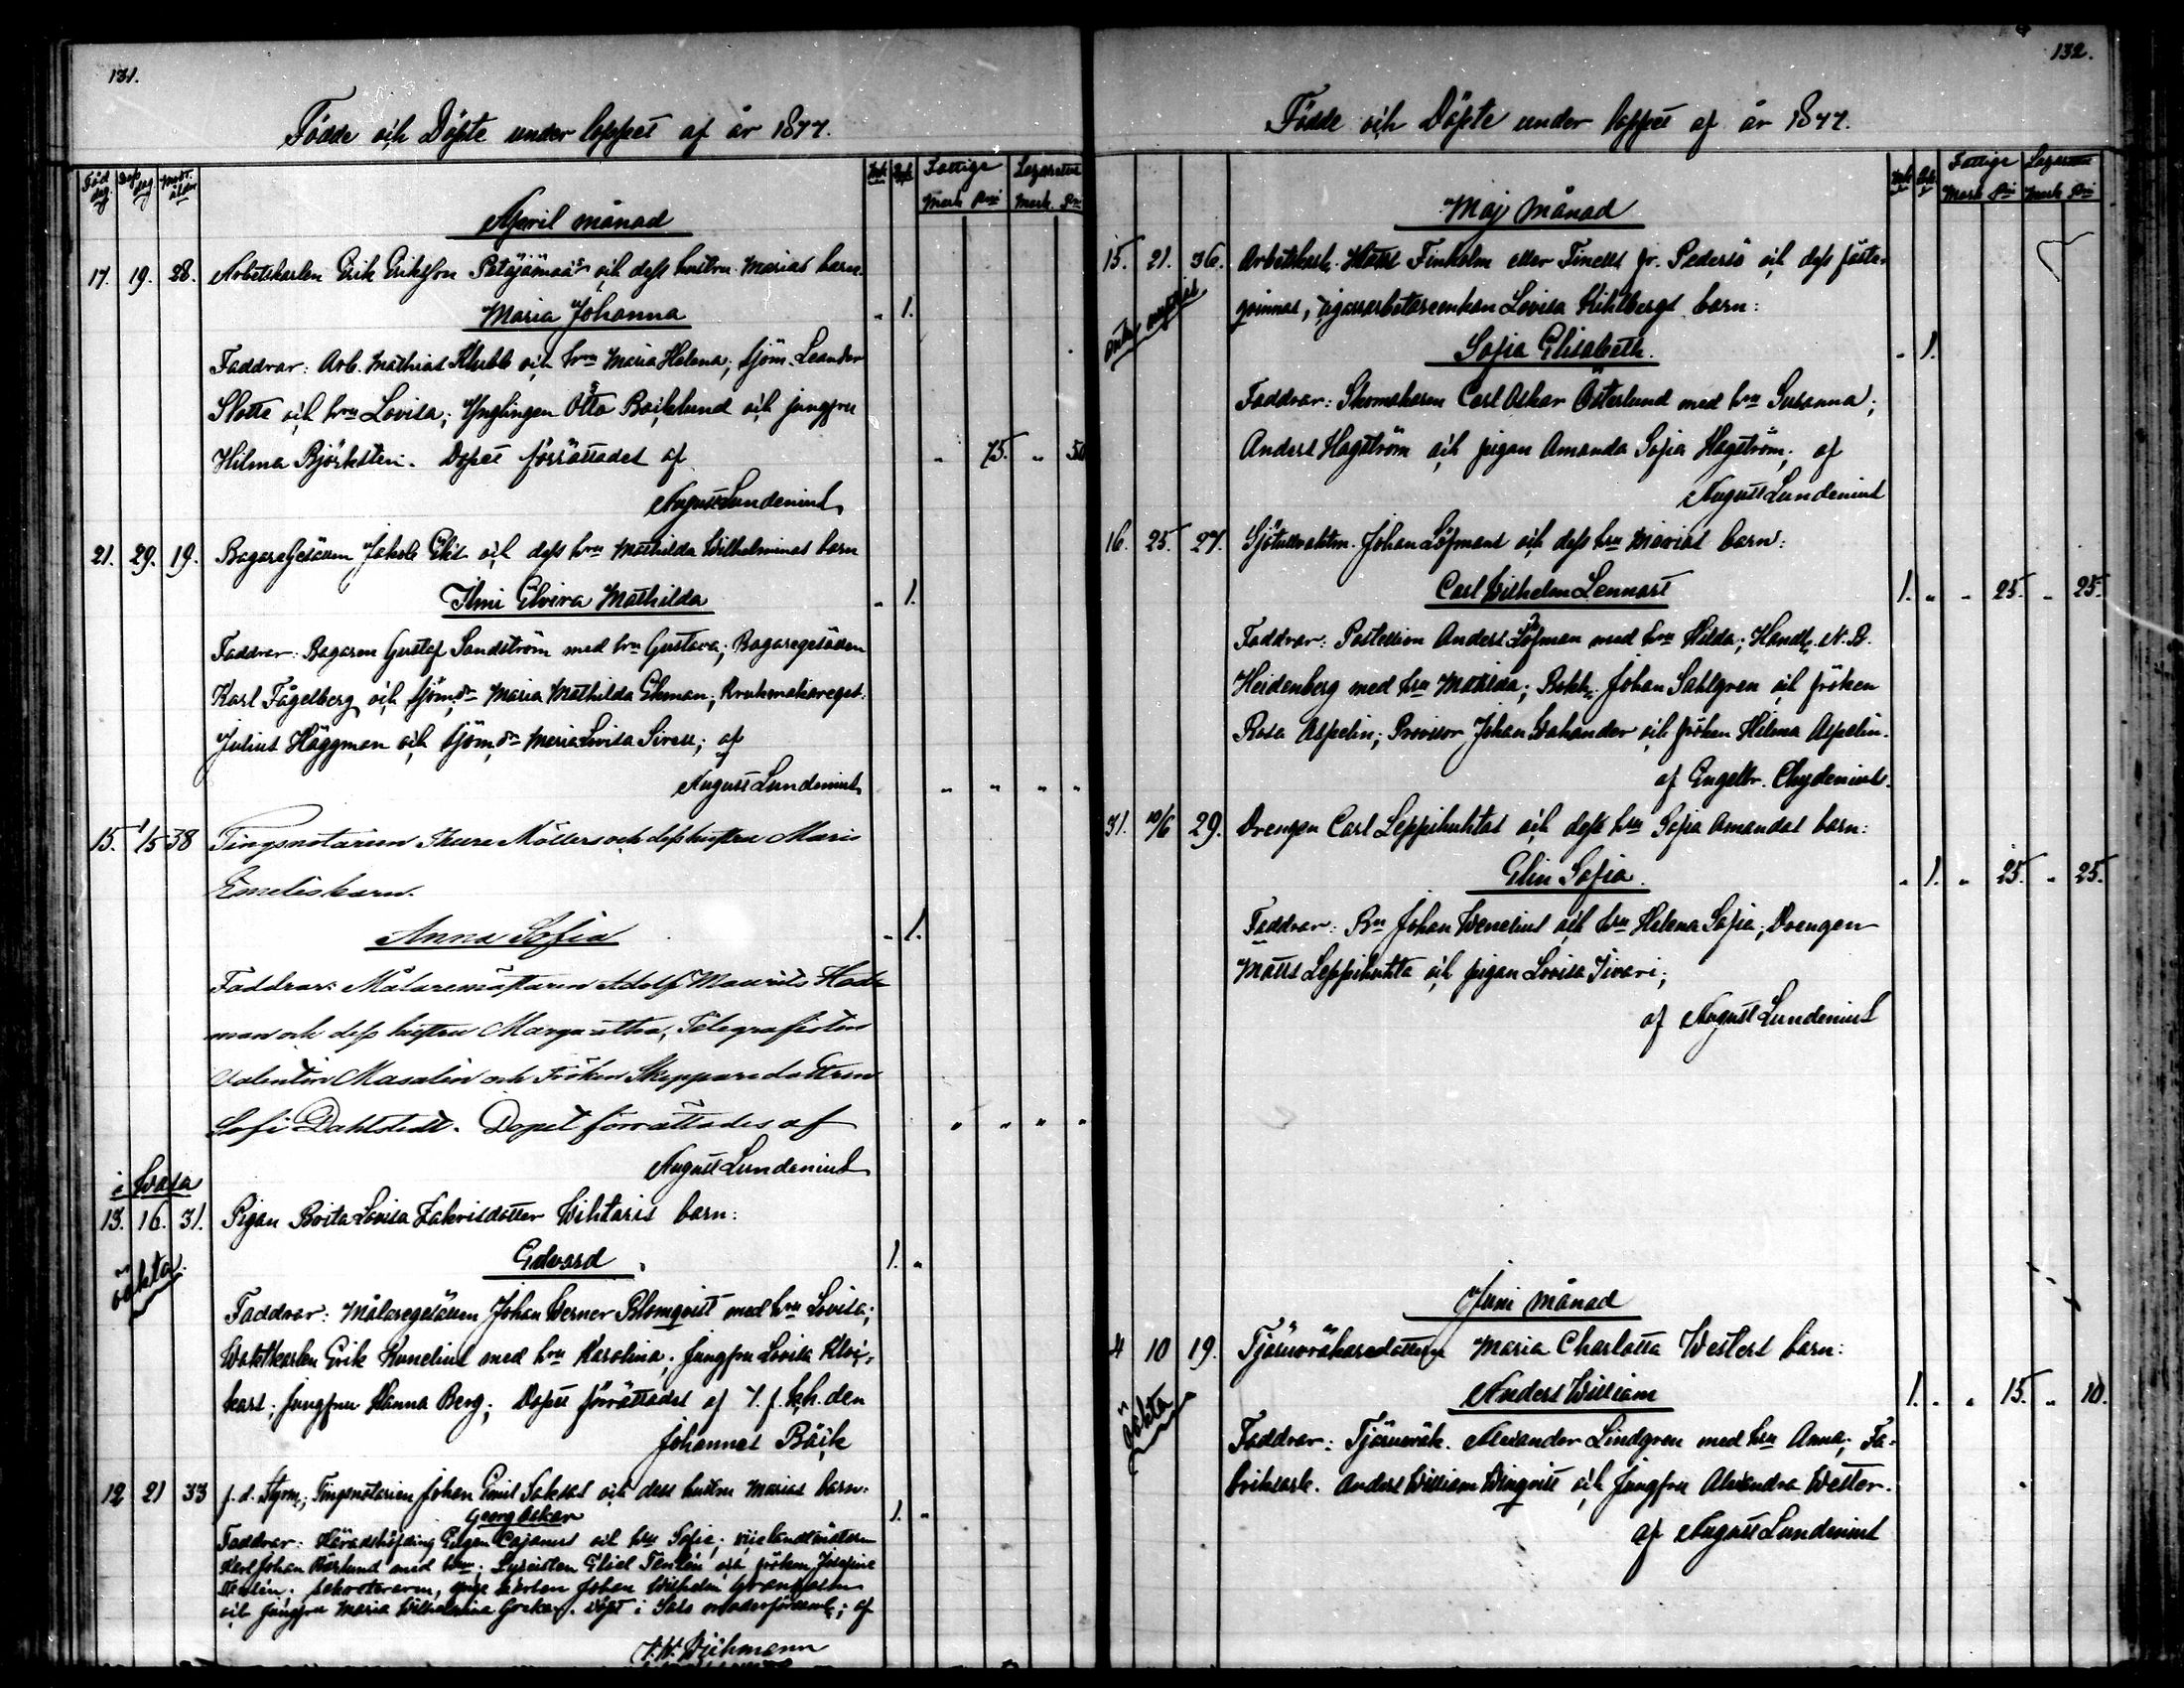 131.
Födde och Döpte under loppet af år 1877.
Föd. dag. Dop dag. Modr. ålder Mk Qvk Fattige Lazarettet
Mark Pni Mark. Pni
April månad
17. 19. 28. Arbetskarlen Erik Eriksson och dess hustru Marias barn.
Maria Johanna " 1.
Faddrar: Arb. Mathias Klubb och hru Maria Helena; sjöm. Leander
Slotte och hru Lovisa; Ynglingen Otto Backlund och jungfru
Hilma Björksten. Dopet förrättades af " 75. " 50
August Lundenius
21. 29. 19. Bagaregesällen Jakob och dess hru Mathilda Wilhelminas barn
Ilmi Elvira Mathilda " 1.
Faddrar: Bagaren Gustaf Sandström med hru Gustava; Bagaregesällen
Karl Fågelberg och sjöm.dr Maria Mathilda Ekman; Krukmakareges.
Julius Häggman och sjöm.dr Maria Lovisa Sirell; af
August Lundenius " " " "
15. 1/5 38 Tingsnotarien Thure Möllers och dess hustru Maris
Emelis barn.
Anna Sofia " 1.
Faddrar: Målaremästaren Adolf Maurits Hed-
man och dess hustru Margaretha, Telegrafisten
Valentin Masalin och Fröken Skepparedottren
Sofi Dahlstedt. Dopet förrättades af " " " "
August Lundenius
i Wasa
13. 16. 31. Pigan Brita Lovisa Zakrisdotter Wihtaris barn:
oäkta.
Edvard 1. "
Faddrar: Målaregesällen Johan Werner Blomqvist med hru Lovisa;
Waktkarlen Erik Kunelius med hru Karolina; Jungfru Lovisa Kloc-
kars; Jungfru Hanna Berg; Dopet förrättades af
Johannes Bäck
12 21 33 f. d. Styrm; Tingsnotarien Johan Emil och dess hustru Marias barn.
Georg Oskar 1. "
Faddrar: Häradshöfding Cajanus och hru Sofia; vicelandtmätaren
Karl Johan med hru; Lyceisten Eliel och fröken Josefine
Johan Wilhelm Granholm
och jungfru Maria Wilhelmina Döpt i moderförsaml; af
Wichmann
132.
Födde och Döpte under loppet af år 1877.
Mk Qvk Fattige Lazarettet
Mark Pni Mark Pni
Maj månad
15. 21. 36. Arbetskarl. Matts Finholm eller Finells fr. Pedersö och dess fäste-
qvinnas, cigarrarbetareenkan Lovisa Kihlbergs barn:
Sofia Elisabeth. " 1.
Faddrar: Skomakaren Carl Oskar Österlund med hru Susanna;
Anders Hagström och pigan Amanda Sofia Hagström; af
August Lundenius
16. 25. 27. Sjötullvaktm. Johan Löfmans och dess hru Marias barn:
Carl Wilhelm Lennart 1. " " 25. " 25.
Faddrar: Postillion Anders Löfman med hru Hilda; Handl. N. B.
Heidenberg med hru Matilda; Bokh. Johan Sahlgren och fröken
Rosa Aspelin; Provisor Johan och fröken Hilma Aspelin.
af Engelbr. Chydenius.
31. 10/6 29. Drengen Carl Leppihuhtas och dess hru Sofia Amandas barn:
Elin Sofia. " 1. " 25. " 25.
Faddrar: Johan Wenelius och hru Helena Sofia; Drengen
Matts Leppihuhta och pigan Lovisa Jivari;
af August Lundenius
Juni månad
4 10 19. Tjärnvräkaredottren Maria Charlotta Westers barn:
oäkta
Anders William 1. " " 15. " 10.
Faddrar: Tjärnvräk. Alexander Lindgren med hru Anna; Fa-
briksarb. Anders William Winqvist och Jungfru Alexandra Wester.
af August Lundenius